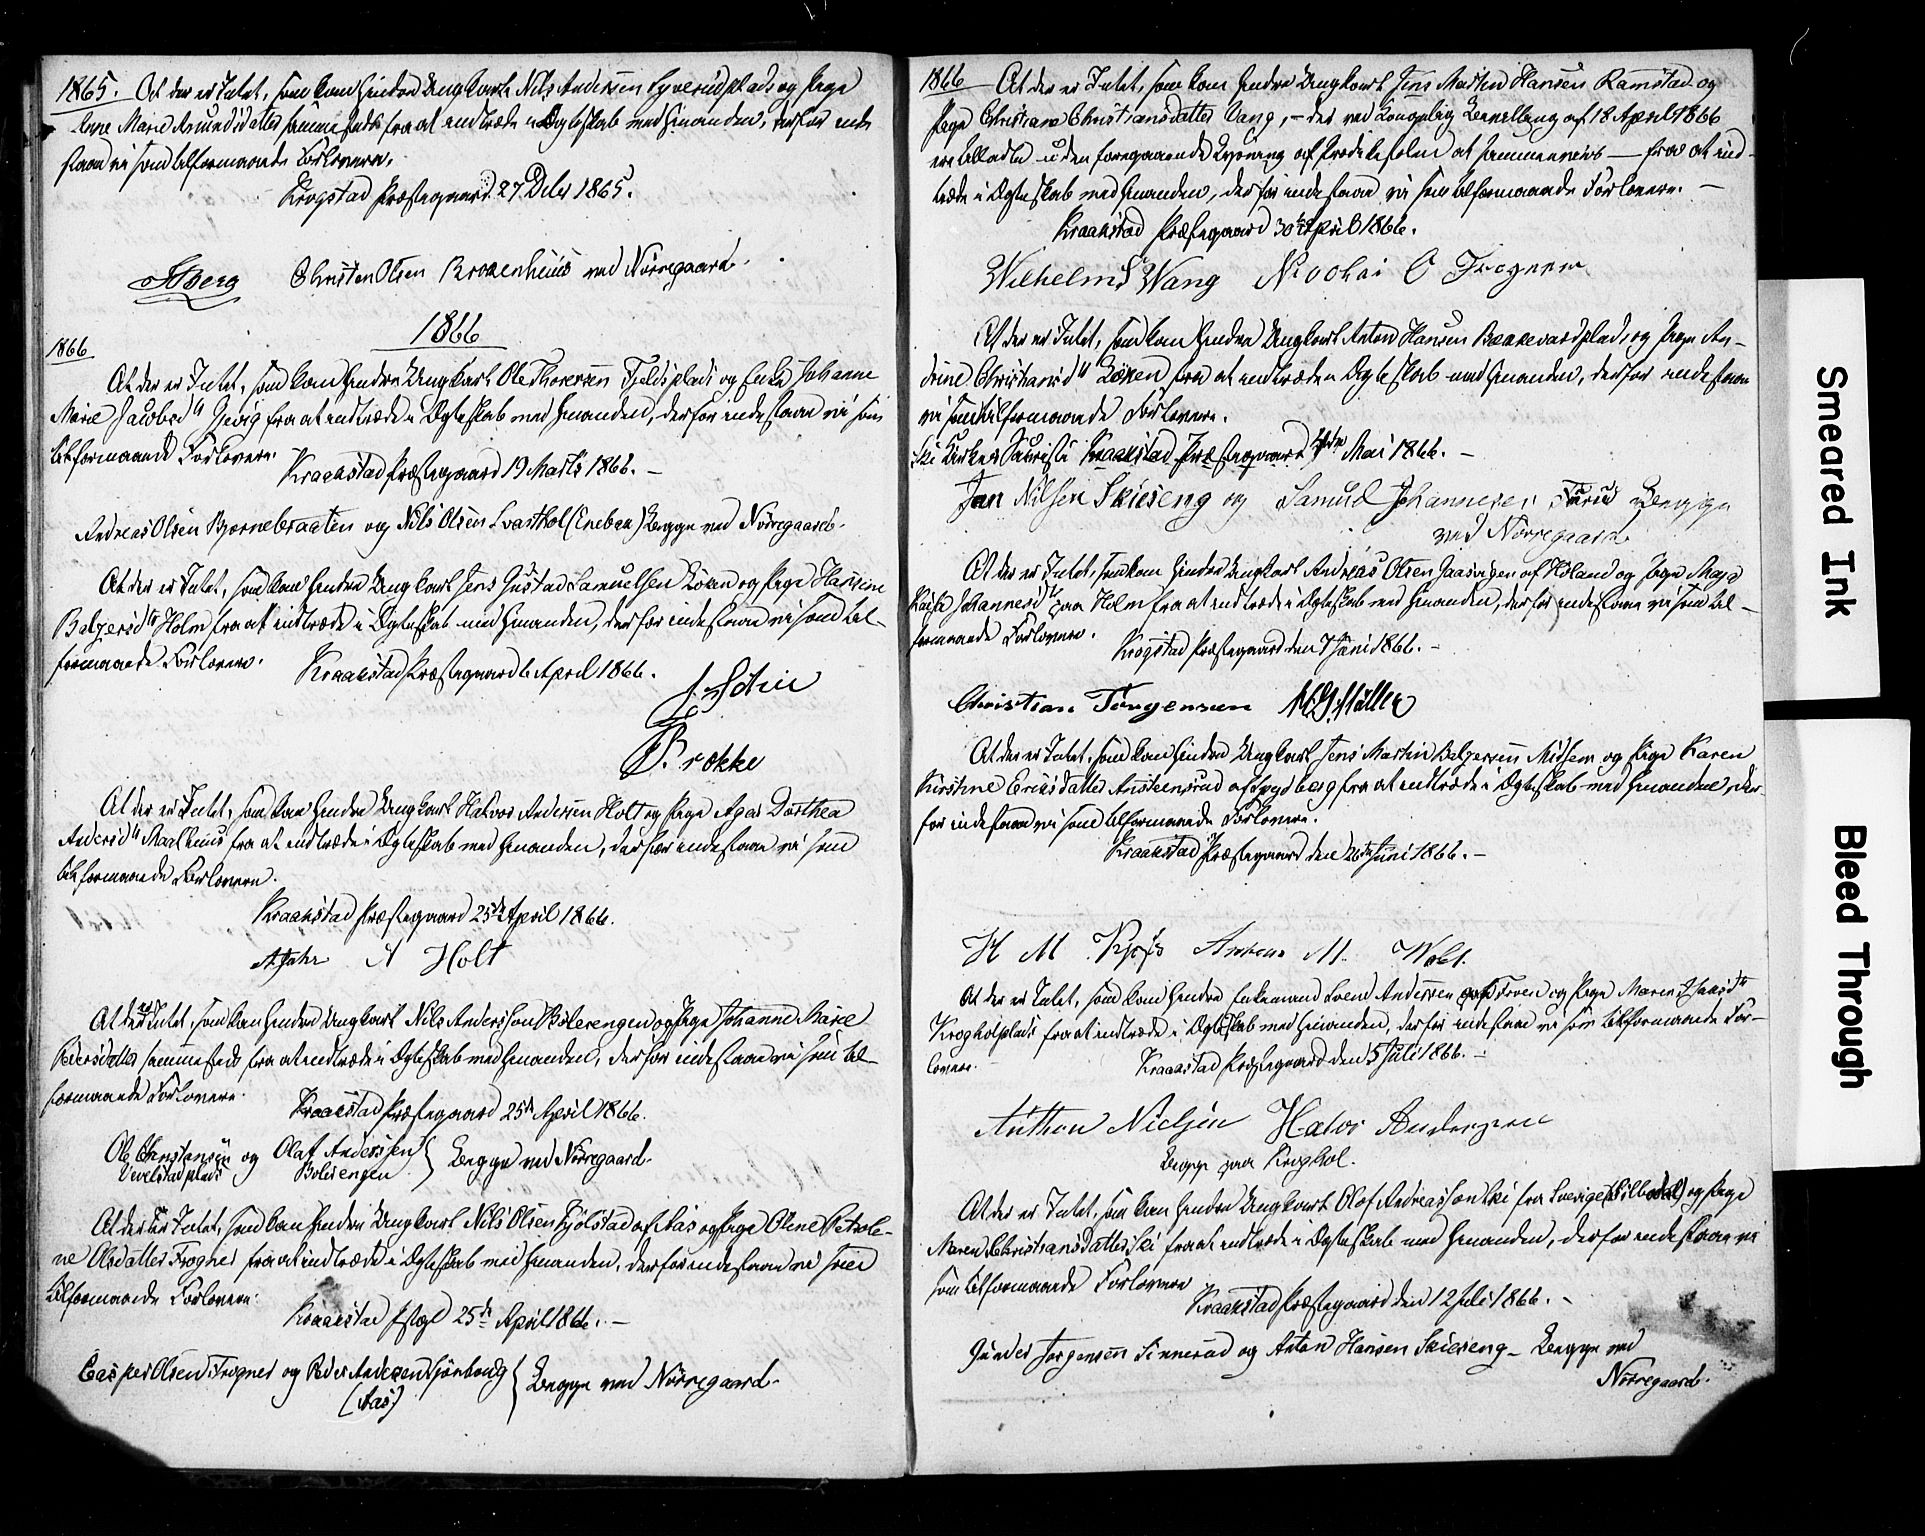 1865. At der er Intet, som kan hindre Ungkarl Nils Andersen Syverudplads og Pige
Anne Marie Amundsdatter sammesteds fra at indtræde i Ægteskab med hinanden, derfor inde
staae vi som tilformaaende Forlovere.
Krogstad Præstegaard 27 Dcbr 1865.
Christen Olsen Brokenhuus ved Norregaard.
1866
1866
At der er Intet, som kan hindre Ungkarl Ole Thoresen Fjeldsplads og Enke Johanne
Marie Jacobsdtr Gjevig fra at indtræde i Ægteskab med hinanden, derfor indestaae vi som
tilformaaende Forlovere.
Kraakstad Præstegaard 19 Marts 1866. –
Andreas Olsen Bjørnebraaten og Nils Olsen Svarthol (Enebak) begge ved Norregaard.
At der er Intet, som kan hindre Ungkarl Jens Gustav Samuelsen Løken og Pige Hansine
Balzersdtr Holm fra at indtræde i Ægteskab med hinanden, derfor indestaae vi som til-
formaaende Forlovere.
Kraakstad Præstegaard 6 April 1866.
Brække
At der er Intet, som kan hindre Ungkarl Halvor Andersen Holt og Pige Agas Dorthea
Andersdtr Maalhuus fra at indtræde i Ægteskab med hinanden, derfor indestaae vi som
tilformaaende Forlovere.
Kraakstad Præstegaard 25de April 1866.
A. Jahr A Holt
At der er Intet, som kan hindre Ungkarl Nils Andersson Bølerengen og Pige Johanne Marie
Pedersdatter sammesteds fra at indtræde i Ægteskab med hinanden, derfor indestaae vi som til-
formaaende Forlovere.
Kraakstad Præstegaard 25de April 1866.
Ole Christensen og Olaf Anderssen } begge ved Norregaard.
Vevelstadplads Bølerengen
At der er Intet, som kan hindre Ungkarl Nils Olsen Kjølstad af Aas og Pige Oline Petroli-
ne Olsdatter Frogner fra at indtræde i Ægteskab med hinanden, derfor indestaae vi som
tilformaaende Forlovere.
Kraakstad Pstgd 25de April 1866. –
Casper Olsen Frogner og Peder Andersen } begge ved Norregaard.
(Aas)
1866 At der er Intet, som kan hindre Ungkarl Jens Martin Hansen Ramstad og
Pige Christiane Christiansdatter Vang, – der ved Kongelig Bevilling af 18 April 1866
ere tilladte uden foregaaende Lysning af Prædikestolen at sammenvies – fra at ind-
træde i Ægteskab med hinanden, derfor indestaae vi som tilformaaende Forlovere. –
Kraakstad Præstegaard 30te April 1866.
Wilhelm S Wang Nicolai O Frogner
At der er Intet, som kan hindre Ungkarl Anton Hansen Bakkevardplads og Pige An-
drine Christiansdtr Løken fra at indtræde i Ægteskab med hinanden, derfor indestaae
vi som tilformaaende Forlovere.
Ski Kirkes Sacristi Kraakstad Præstegaard Mai 1866. –
Jan Nilsen Skiseng og Samuel Johannesen begge
ved Norregaard
At der er Intet, som kan hindre Ungkarl Andreas Olsen Haasvigen af Høland og Pige Maja
Kaisa Johannesdtr paa Holm fra at indtræde i Ægteskab med hinanden, derfor indestaae vi som til-
formaaende Forlovere.
Krogstad Præstegaard den 7 Juni 1866. –
Christian Jørgensen Møller
At der er Intet, som kan hindre Ungkarl Jens Martin Balzersen Midsem og Pige Karen
Kirstine Ericksdatter Ansteinsrud af Spydberg fra at indtræde i Ægteskab med hinanden, der-
for indestaae vi som tilformaaende Forlovere.
Kraakstad Præstegaard den 26de Juni 1866. –
H M
At der er Intet, som kan hindre Enkemand Svend Andersen Froen og Pige Maren
Krogholplads fra at indtræde i Ægteskab med hinanden, derfor indestaae vi som tilformaaende For-
lovere.
Kraakstad Præstegaard den 5 Juli 1866. –
Anthon Nielsen Halvor Andersen
begge paa Kroghol.
At der er Intet, som kan hindre Ungkarl Olof Andreasson Ski fra Sverige og Pige
Maren Christiansdatter Ski fra at indtræde i Ægteskab med hinanden, derfor indestaae vi
som tilformaaende Forlovere
Kraakstad Præstegaard den 12 Juli 1866. –
Gunder Jørgensen Finnerud og Anton Hansen Skiseng – begge ved
Norregaard.
Smeared Ink
Bleed Through